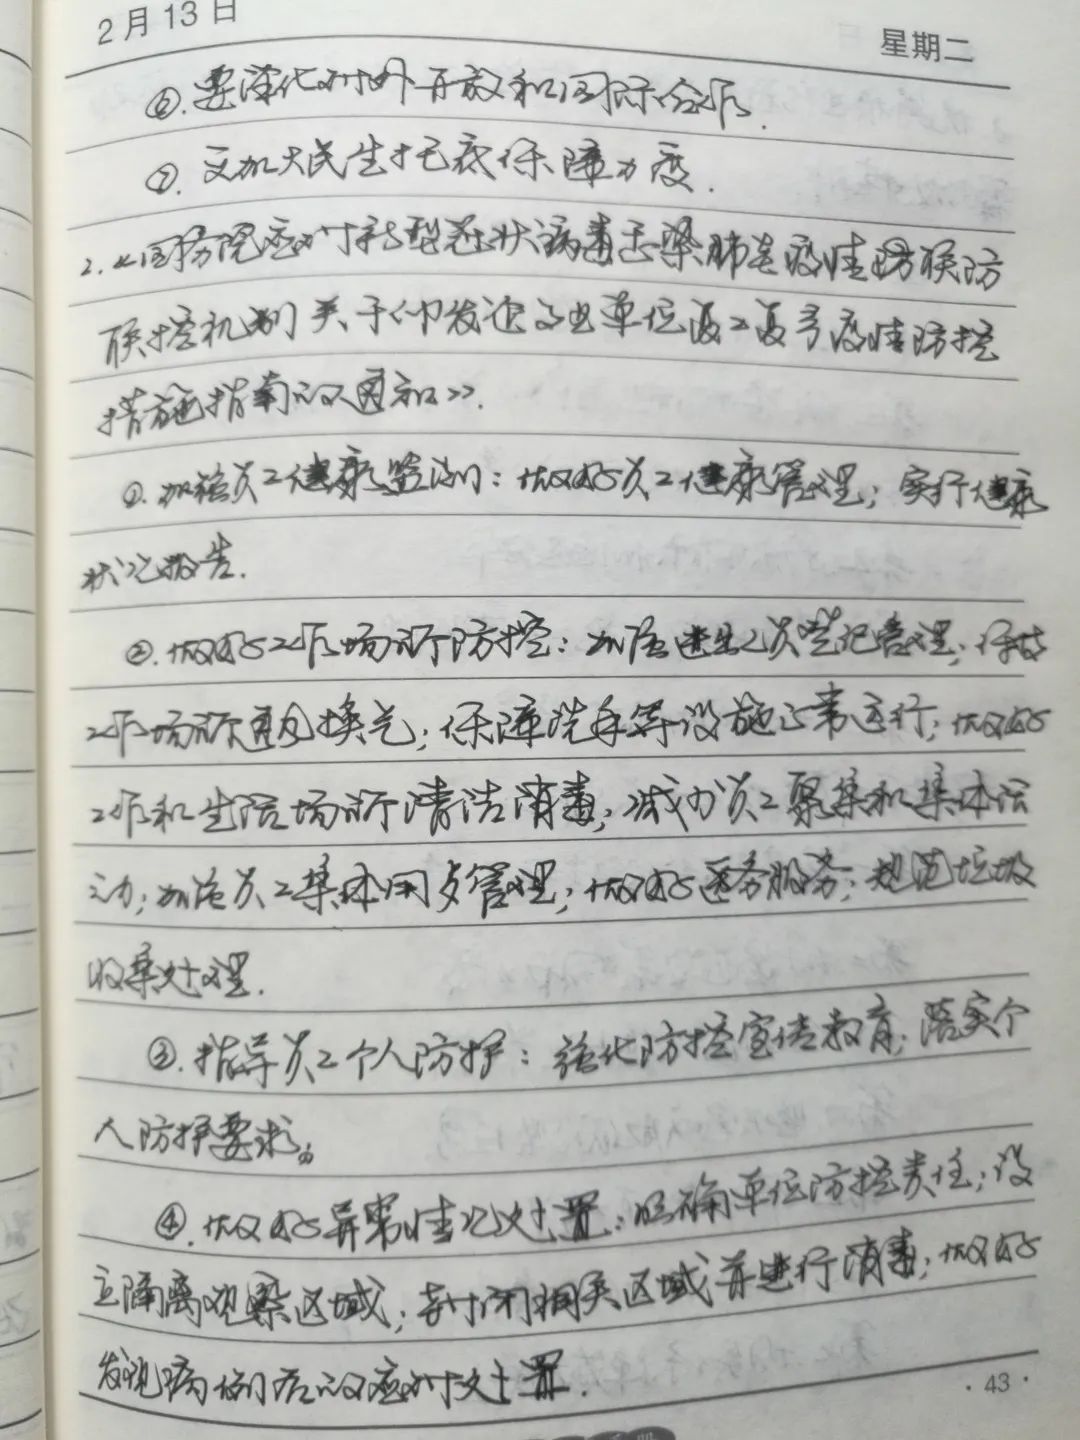 2月13日
星期二
⑥.要深化对外开放和国际合作.
⑦.加大民生托底保障力度.
2.《国务院应对新型冠状病毒感染肺炎疫情联防
联控机制关于印发企事业单位复工复产疫情防控
措施指南的通知》.
①.加强员工健康监测:做好员工健康管理;实行健康
状况报告.
②.做好工作场所防控:加强进出人员登记管理;保持
工作场所通风换气;保障洗手等设施正常运行;做好
工作和生活场所清洁消毒;减少员工聚集和集体活
动;加强员工集体用餐管理;做好医务服务;规范垃圾
收集处理.
③.指导员工个人防护:强化防控宣传教育;落实个
人防护要求。
④.做好异常情况处置:明确单位防控责任;设
立隔离观察区域;封闭相关区域并进行消毒;做好
发现病例后的应对处置.
·43·